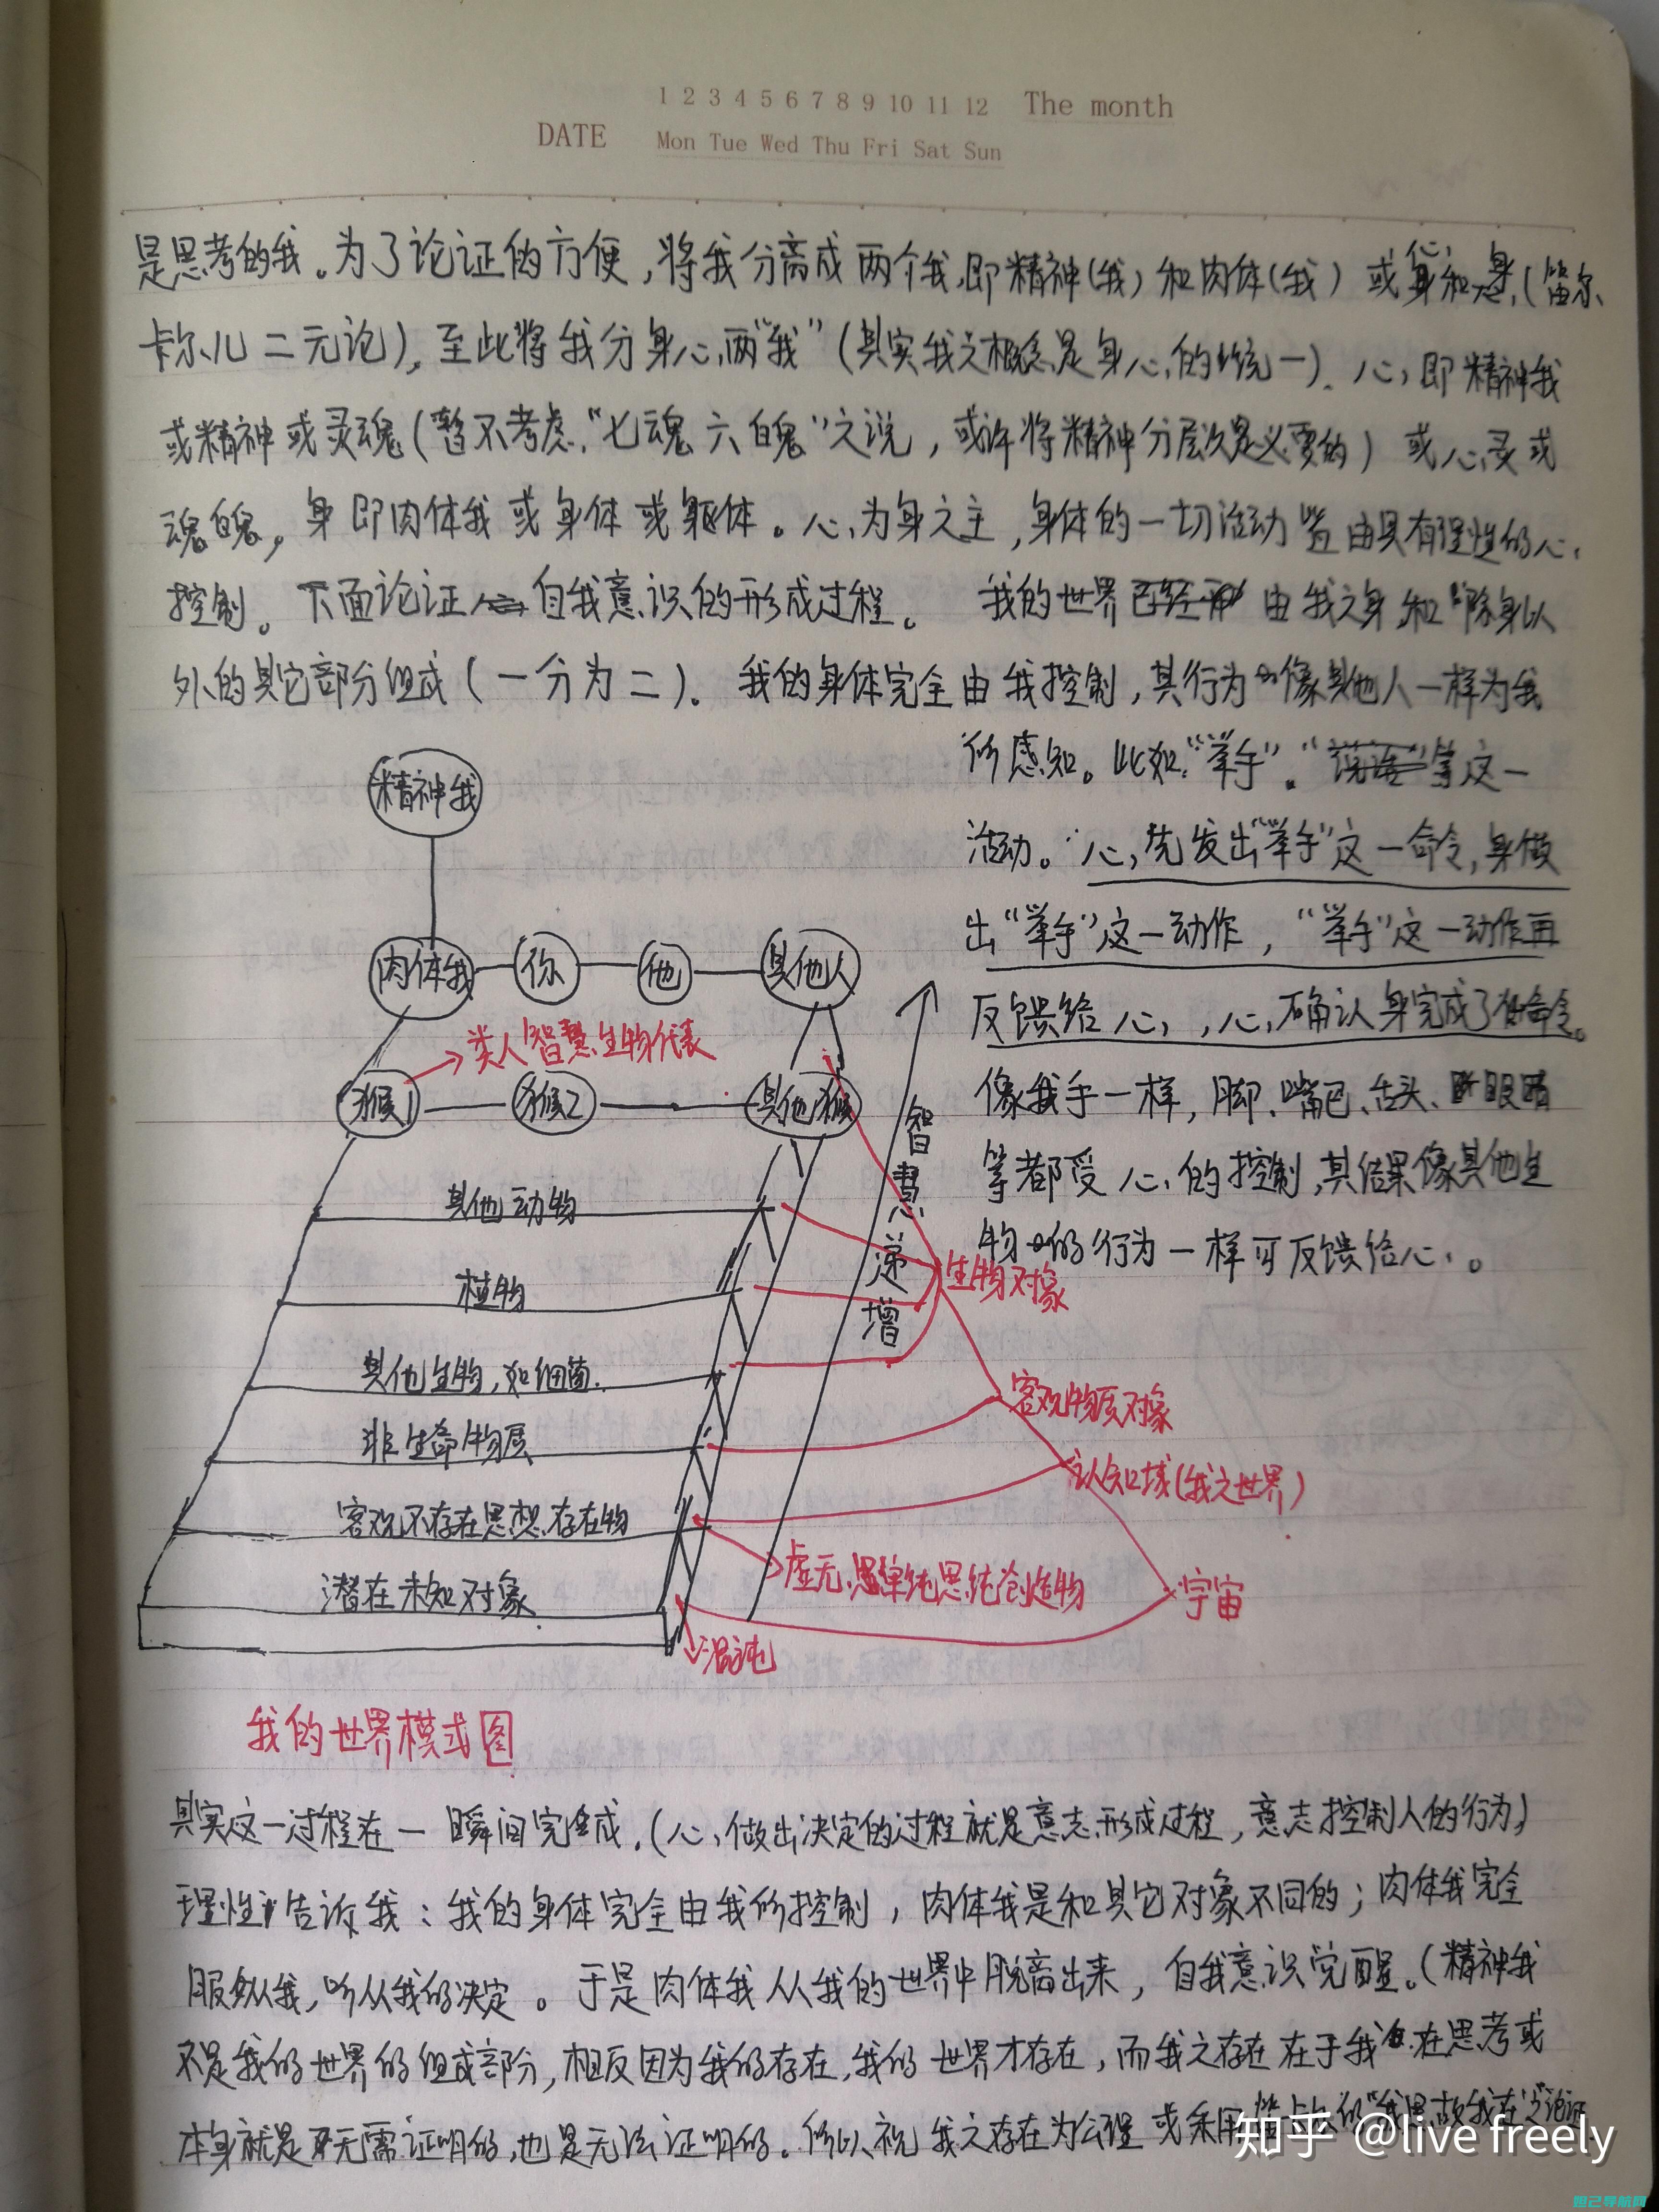 1 2 3 4 5 6 7 8 9 10 11 12 The month
DATE Mon Tue Wed Thu Fri Sat Sun
是思考的我。为了论证的方便,将我分离成两个我,即精神(我)和肉体(我)或身和(笛尔
卡尔儿二元论),至此将我分身心两"我"(其实我之概念是身心的统一)。心,即精神我
或精神或灵魂(暂不考虑"七魂六魄"之说,或许将精神分层次是必要的)或心灵或
魂魄。身即肉体我或身体或躯体。心为身之主,身体的一切活动皆由具有理性的心
控制。下面论证自我意识的形成过程。 我的世界由我之身和除身以
外的其它部分组成(一分为二)。我的身体完全由我控制,其行为像其他人一样为我
所感知。比如"举手"。等这一
活动。心先发出"举手"这一命令,身做
出"举手"这一动作,"举手"这一动作再
反馈给心,心确认身完成了命令。
像我手一样,脚、嘴巴、舌头、眼睛
等都受心的控制,其结果像其他生
物的行为一样可反馈给心。
精神我
肉体我 你 他 其他人
类人智慧生物代表
猴1 猴2 其他猴
智慧递增
其他动物
植物
生物对象
其他生物,如细菌.
客观物质对象
非生命物质
认知区域(我之世界)
客观不存在思想存在物
虚无,单纯思统创造物
宇宙
潜在未知对象
混沌
我的世界模式图
其实这一过程在一瞬间完成.(心做出决定的过程就是意志形成过程,意志控制人的行为)
理性告诉我:我的身体完全由我所控制,肉体我是和其它对象不同的;肉体我完全
服从我,听从我的决定。于是肉体我从我的世界中脱离出来,自我意识觉醒。(精神我
不是我的世界的组成部分,相反因为我的存在,我的世界才存在,而我之存在在于我在思考或
本身就是无需证明的,也是无法证明的。所以视我之存在为公理或采用笛卡尔的"我思故我在"之论证
知乎 @live freely
妲己导航网